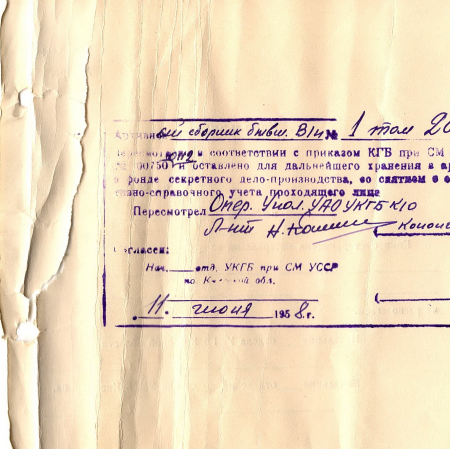 Архивн ый сборник бывш. В/ч № 1 том 20
в соответствии с приказом КГБ при СМ
№ 00750 и оставлено для дальнейшего хранения в ар
в фонде секретного дело-производства, со снятием с о
тивно-справочного учета проходящего лица
Пересмотрел Опер. Упол. УАО УКГБ К/О
Л-нт
Согласен:
Нач. отд. УКГБ при СМ УССР
по обл.
11. июня 1958 г.